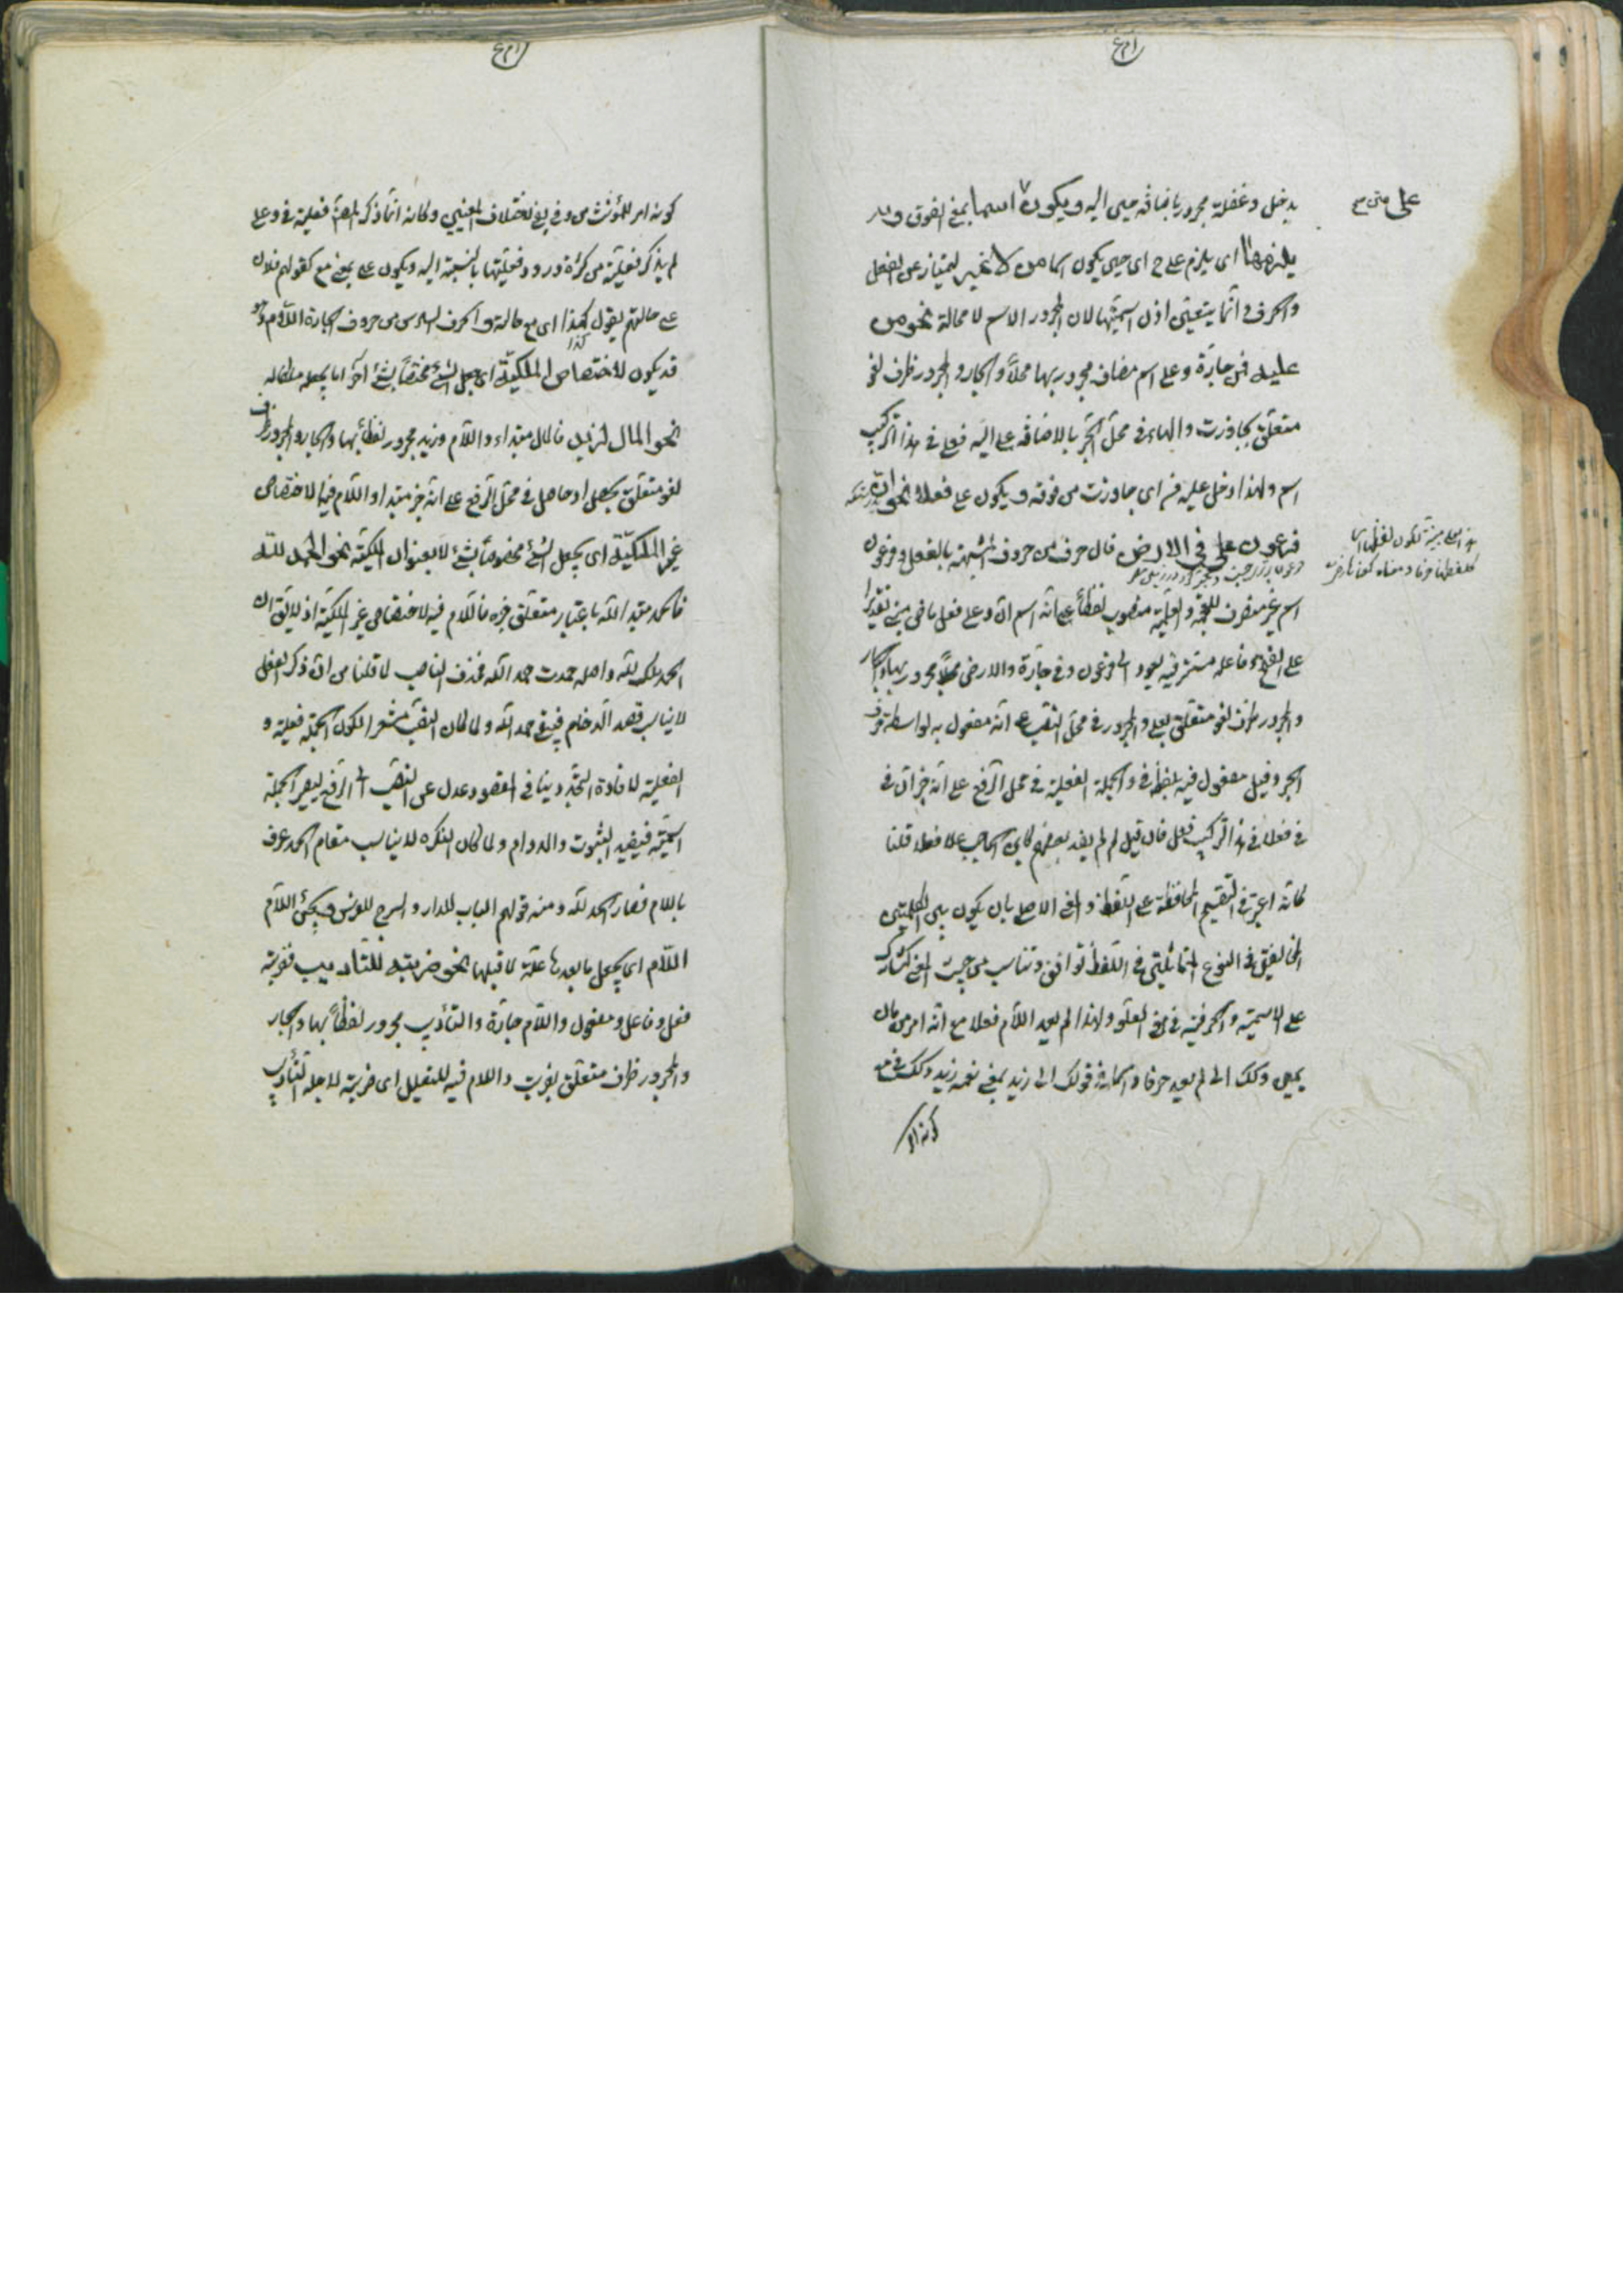 يدخل وغفلة مجرور باضافة حين اليه ويكون اسما بمعنى الفوق و
يلزمها من اى يلزم على ح اى حين يكون اسما من لا غير ليمتاز عن الفعل
والحرف وانما يتعين اذن اسميتها لان المجرور الاسم لا محالة نحو من
عليه فمن جارة وعلى اسم مضاف مجرور بها محلا والجار والمجرور ظرف لغو
متعلق بجاوزت والهاء فى محل الجر بالاضافة على اليه فعلى فى هذا التركيب
اسم ولهذا دخل عليه من اى جاوزت من فوقه ويكون على فعلا نحو ان
فرعون على فى الارض فان حرف من حروف المشبهة بالفعل وفرعون
اسم غير منصرف للعجمة والعلمية منصوب لفظا على انه اسم ان وعلى فعل ماضى مبنى تقديرا
على الفتح وفاعله مستتر فيه يعود الى فرعون وفى جارة والارض مجرور بها والجار
والمجرور ظرف لغو متعلق بعلى والمجرور فى محل النصب على انه مفعول به بواسطة حرف
الجر وقيل مفعول فيه بلفظ فى والجملة الفعلية فى محل الرفع على انه خبر ان
فعلا فى هذا التركيب فعل فان قيل لم لم يعد بعضهم كابن الحاجب علا فعلا قلنا
كانه اعتبر فى التقسيم المحافظة على اللفظ والمعنى الاصلى بان يكون بين الكلمتين
المختلفتين فى النوع المتماثلتين فى اللفظ توافق وتناسب من حيث المعنى كاشتراك
على الاسمية والحرفية فى معنى العلو ولهذا لم يعد اللام فعلا مع انه امر من مان
يمين وكذا الى لم يعد حرفا واسما فى قولك الى زيد بمعنى نعمه زيد وكذا فى مع
كونه امر
على متن مح
كونه امر للمؤنث من وفى يفى لاختلاف المعنيين وكانه انما ذكر المص فعلية فى وعلى
لم يذكر فعلية من كثرة ورود فعليتها بالنسبة اليه ويكون على بمعنى مع كقولهم فلان
على جلالته يقول كذا اى مع جلالته والحرف السادس من حروف الجارة اللام وهو
قد يكون للاختصاص الملكية اى جعل الشئ مختصا بشئ آخر اما بجعله ملكا له
نحو المال لزيد فالمال مبتداء واللام وزيد مجرور لفظا بها والجار والمجرور ظرف
لغو متعلق بحصل او حاصل فى محل الرفع على انه خبر مبتدا واللام فيه الاختصاص
غير الملكية اى بجعل الشئ مخصوصا بشئ لا بعنوان الملكية نحو الحمد لله
فالحمد مبتدا لله باعتبار متعلق خبره فاللام فيه لاختصاص غير الملكية اذ لا يقال ان
الحمد ملك لله واصله حمدت حمدا لله فحذف الناصب لما قلنا من ان ذكر الفعل
لا يناسب قصد الدوام فبقى حمدا لله ولما كان النصب مشعرا لكون الجملة فعلية و
الفعلية لافادة التجدد ينافى المقصود عدل عن النصب الى الرفع ليصير الجملة
اسمية فيفيد الثبوت والدوام ولما كان النكرة لا يناسب مقام الحمد عرف
باللام فصار الحمد لله ومنه قولهم الباب للدار والسرج للفرس ويجئ اللام
اللام اى يجعل ما بعدها علة لما قبلها نحو ضربته للتاديب فضربته
فعل وفاعل ومفعول واللام جارة والتأديب مجرور لفظا بها والجار
والمجرور ظرف متعلق بضربت واللام فيه للتعليل اى ضربته لاجله التأديب